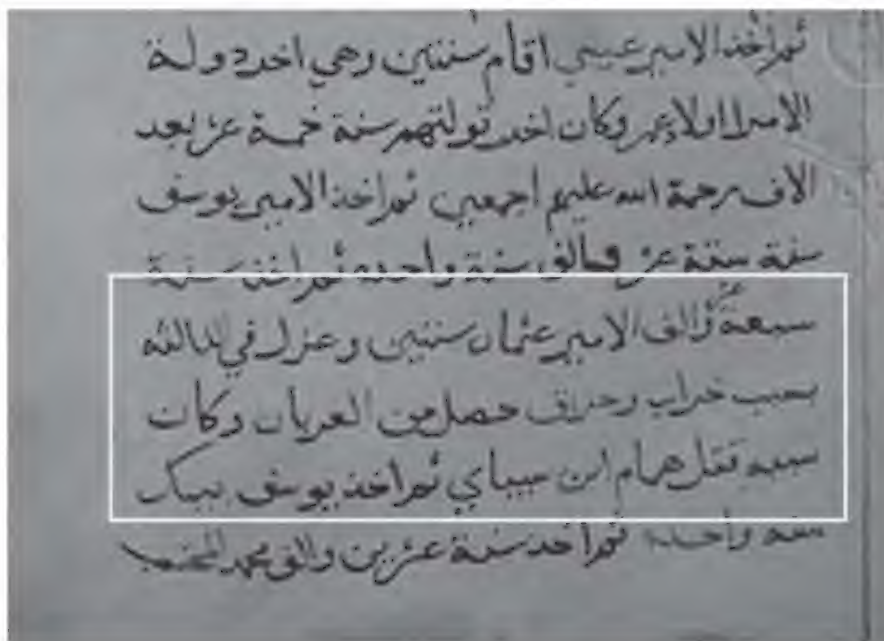 ثم اخذ الامير عيسي اقام سنتين وهي اخر دولة
الامرا اولاد عمر وكان اخر تولتهم سنة خمسة عشر بعد
الالف رحمة الله عليهم اجمعين ثم اخذ الامير يوسف
سنة ستة عشر والف سنة واحده ثم اخذ سنة
سبعة عشر والف الامير عثمان سنتين وعزل في الثالثه
بسبب خراب وحريق حصل من العربان وكان
سببه قتل همام ابن سيباي ثم اخذ يوسف بيك
سنه واحده ثم اخذ سنة عشرين والف محمد